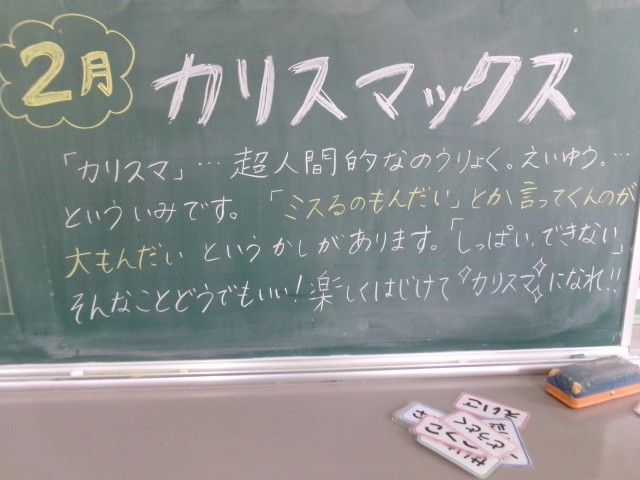 2月
カリスマックス
「カリスマ」…超人間的なのうりょく。えいゆう。…
といういみです。「ミスるのもんだい」とか言ってくんのが
大もんだい というかしがあります。「しっぱい、できない」
そんなことどうでもいい！楽しくはじけてカリスマになれ!!
えいご